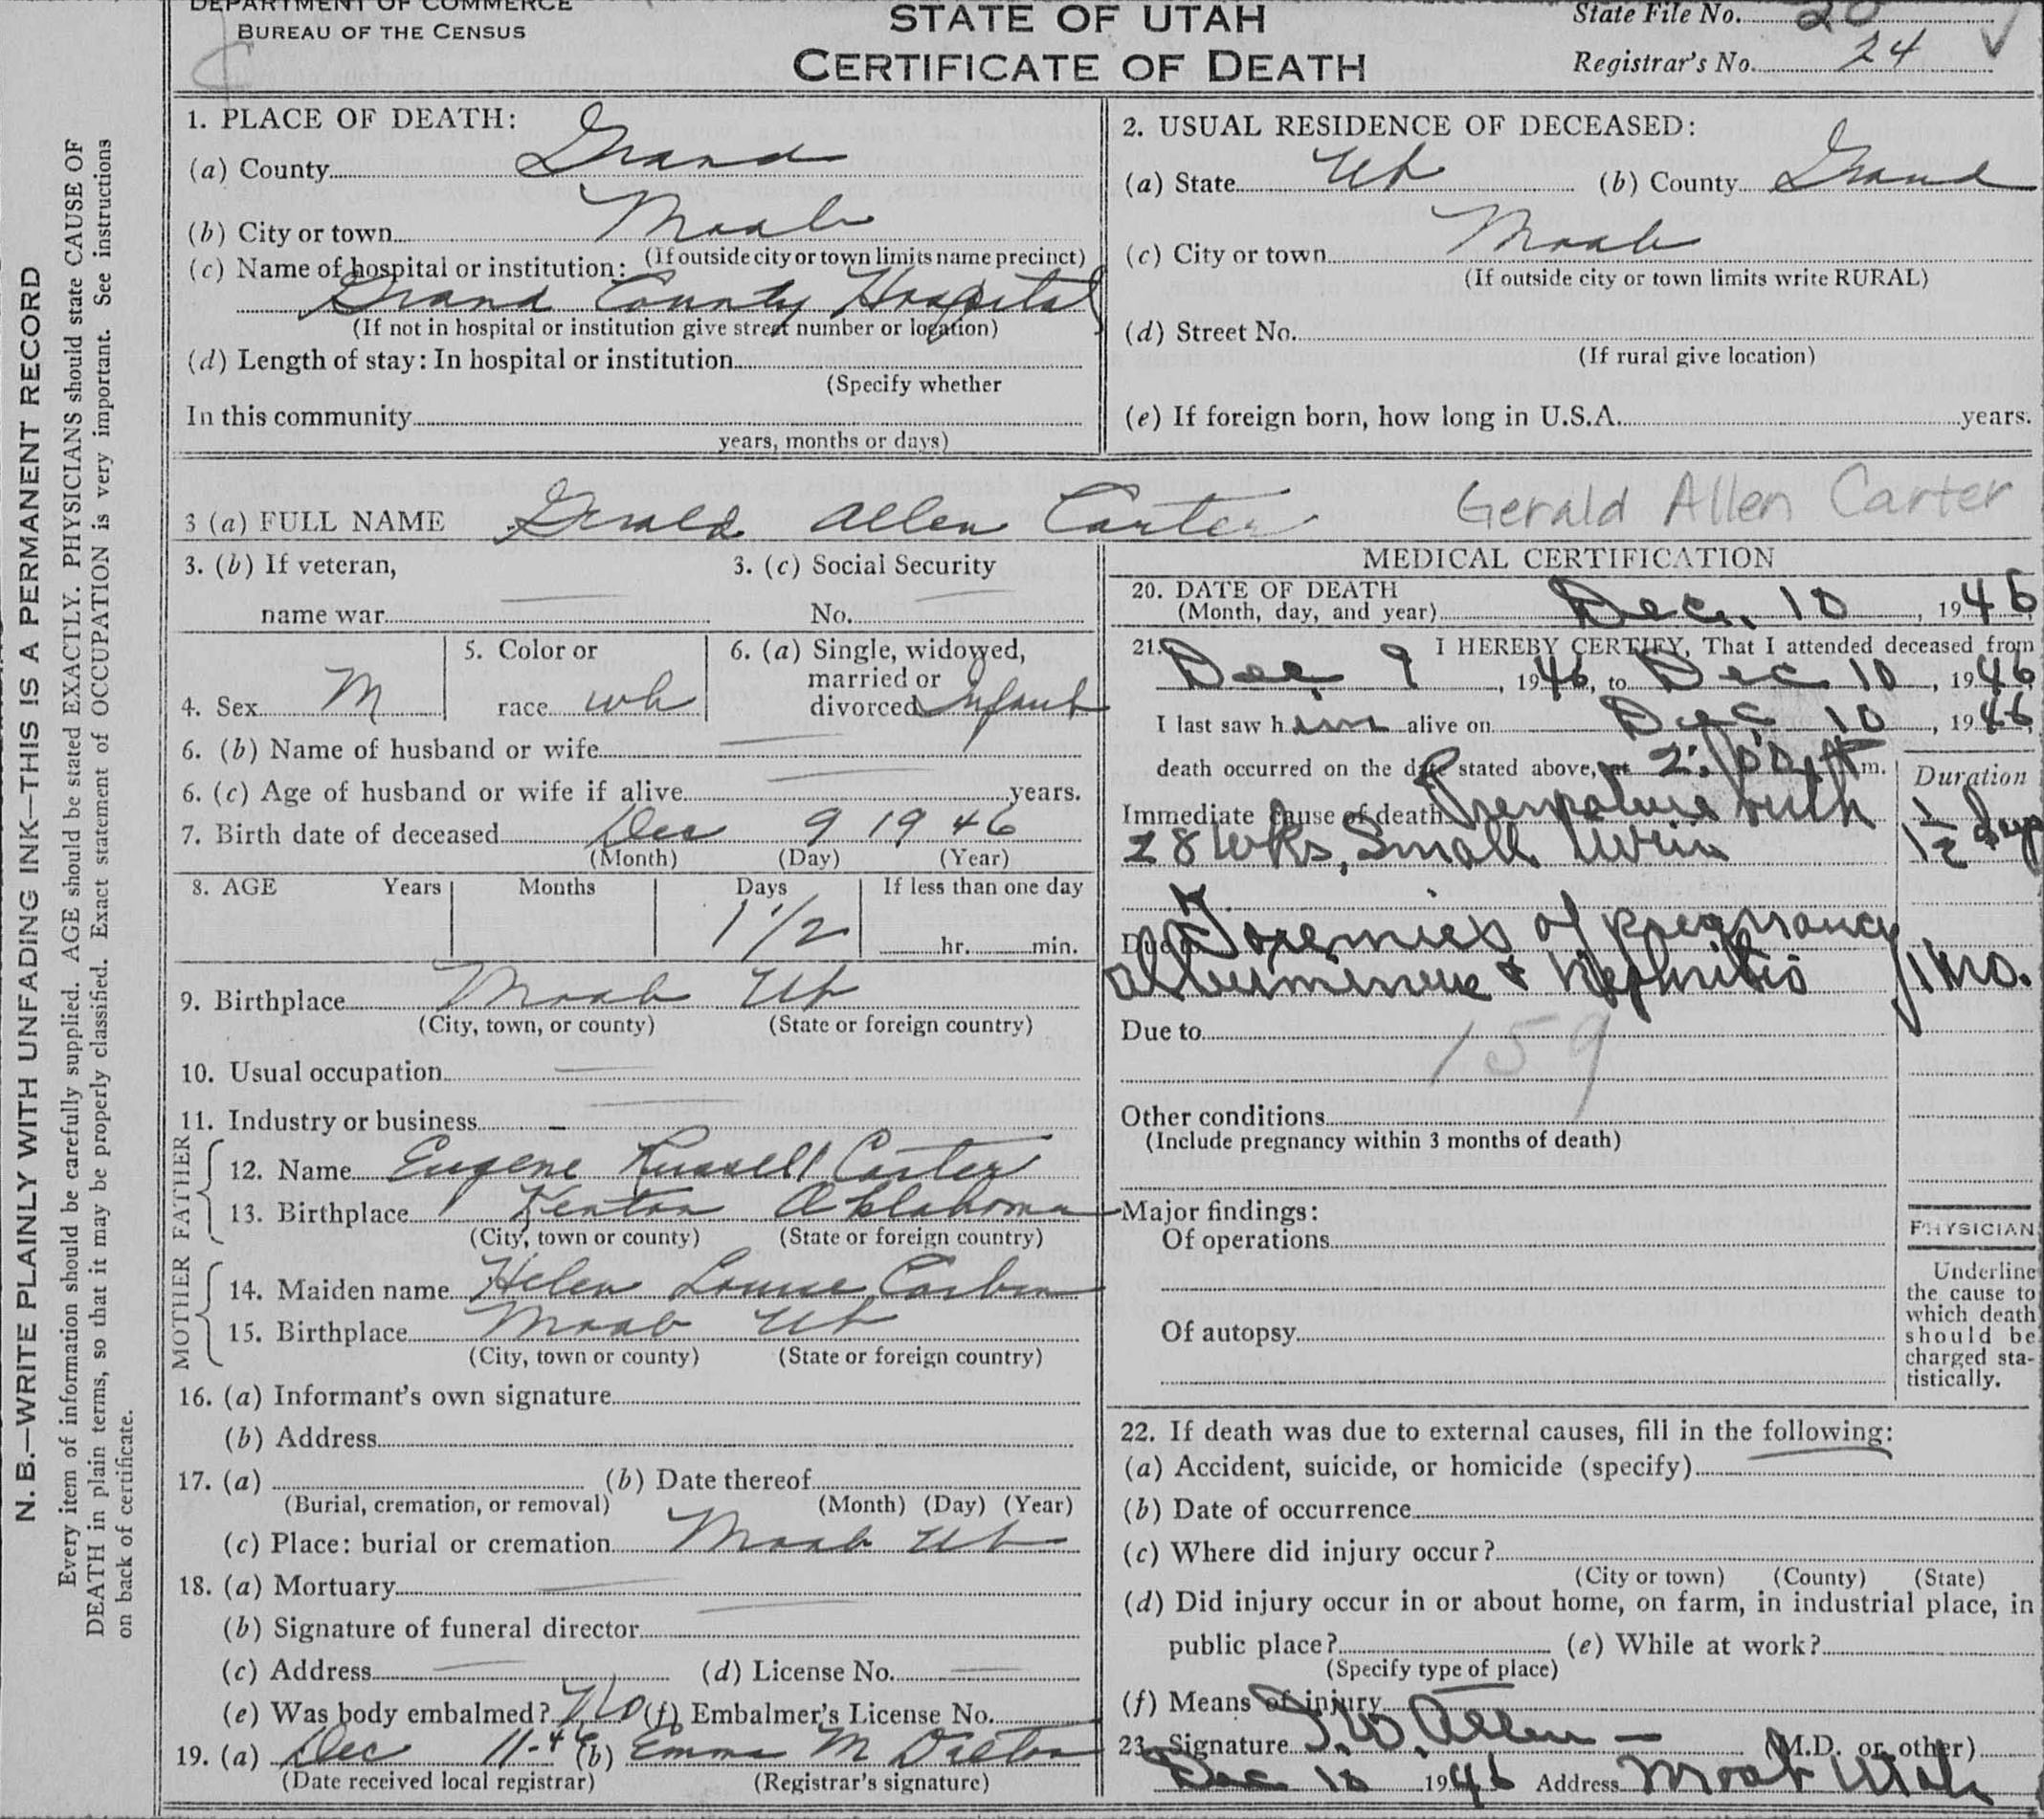 DEPARTMENT OF COMMERCE
BUREAU OF THE CENSUS
STATE OF UTAH
CERTIFICATE OF DEATH
State File No. 20
Registrar's No. 24
N. B.—WRITE PLAINLY WITH UNFADING INK—THIS IS A PERMANENT RECORD
Every item of information should be carefully supplied. AGE should be stated EXACTLY. PHYSICIANS should state CAUSE OF
DEATH in plain terms, so that it may be properly classified. Exact statement of OCCUPATION is very important. See instructions
on back of certificate.
1. PLACE OF DEATH:
(a) County Grand
(b) City or town Moab
(If outside city or town limits name precinct)
(c) Name of hospital or institution:
Grand County Hospital
(If not in hospital or institution give street number or location)
(d) Length of stay: In hospital or institution
(Specify whether
In this community
years, months or days)
2. USUAL RESIDENCE OF DECEASED:
(a) State Ut (b) County Grand
(c) City or town Moab
(If outside city or town limits write RURAL)
(d) Street No.
(If rural give location)
(e) If foreign born, how long in U.S.A. years.
3 (a) FULL NAME Gerald Allen Carter Gerald Allen Carter
3. (b) If veteran, 3. (c) Social Security
name war No.
4. Sex M
5. Color or
race wh
6. (a) Single, widowed,
married or
divorced Infant
6. (b) Name of husband or wife
6. (c) Age of husband or wife if alive years.
7. Birth date of deceased Dec 9 1946
(Month) (Day) (Year)
8. AGE Years Months Days If less than one day
1 1/2 hr. min.
9. Birthplace Moab Ut
(City, town, or county) (State or foreign country)
10. Usual occupation
11. Industry or business
FATHER
12. Name Eugene Russell Carter
13. Birthplace Kenton Oklahoma
(City, town or county) (State or foreign country)
MOTHER
14. Maiden name Helen Louise Corbin
15. Birthplace Moab Ut
(City, town or county) (State or foreign country)
16. (a) Informant's own signature
(b) Address
17. (a) (b) Date thereof
(Burial, cremation, or removal) (Month) (Day) (Year)
(c) Place: burial or cremation Moab Ut
18. (a) Mortuary
(b) Signature of funeral director
(c) Address (d) License No.
(e) Was body embalmed? No (f) Embalmer's License No.
19. (a) Dec 11-46 (b) Emma M Dalton
(Date received local registrar) (Registrar's signature)
MEDICAL CERTIFICATION
20. DATE OF DEATH
(Month, day, and year) Dec. 10, 1946
21. I HEREBY CERTIFY, That I attended deceased from
Dec 9, 1946, to Dec 10, 1946
I last saw him alive on Dec 10, 1946,
death occurred on the date stated above, at 2:00 m.
Duration
Immediate cause of death Premature birth
28 Wks, Small
1 1/2 day
Due to Toxemies of pregnancy
& Nephritis 1 mo.
Due to
159
Other conditions
(Include pregnancy within 3 months of death)
Major findings:
Of operations
Of autopsy
PHYSICIAN
Underline
the cause to
which death
should be
charged sta-
tistically.
22. If death was due to external causes, fill in the following:
(a) Accident, suicide, or homicide (specify)
(b) Date of occurrence
(c) Where did injury occur?
(City or town) (County) (State)
(d) Did injury occur in or about home, on farm, in industrial place, in
public place? (e) While at work?
(Specify type of place)
(f) Means of injury
23. Signature I. W. Allen — (M.D. or other)
Dec 10 1946 Address Moab Utah